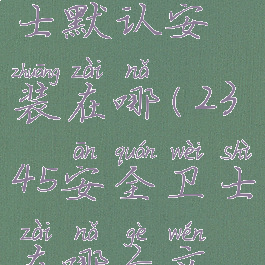 士默认安
zhuāng zài nǎ
装在哪(23
ān quán wèi shì
45安全卫士
zài nǎ gè wén
在哪个文